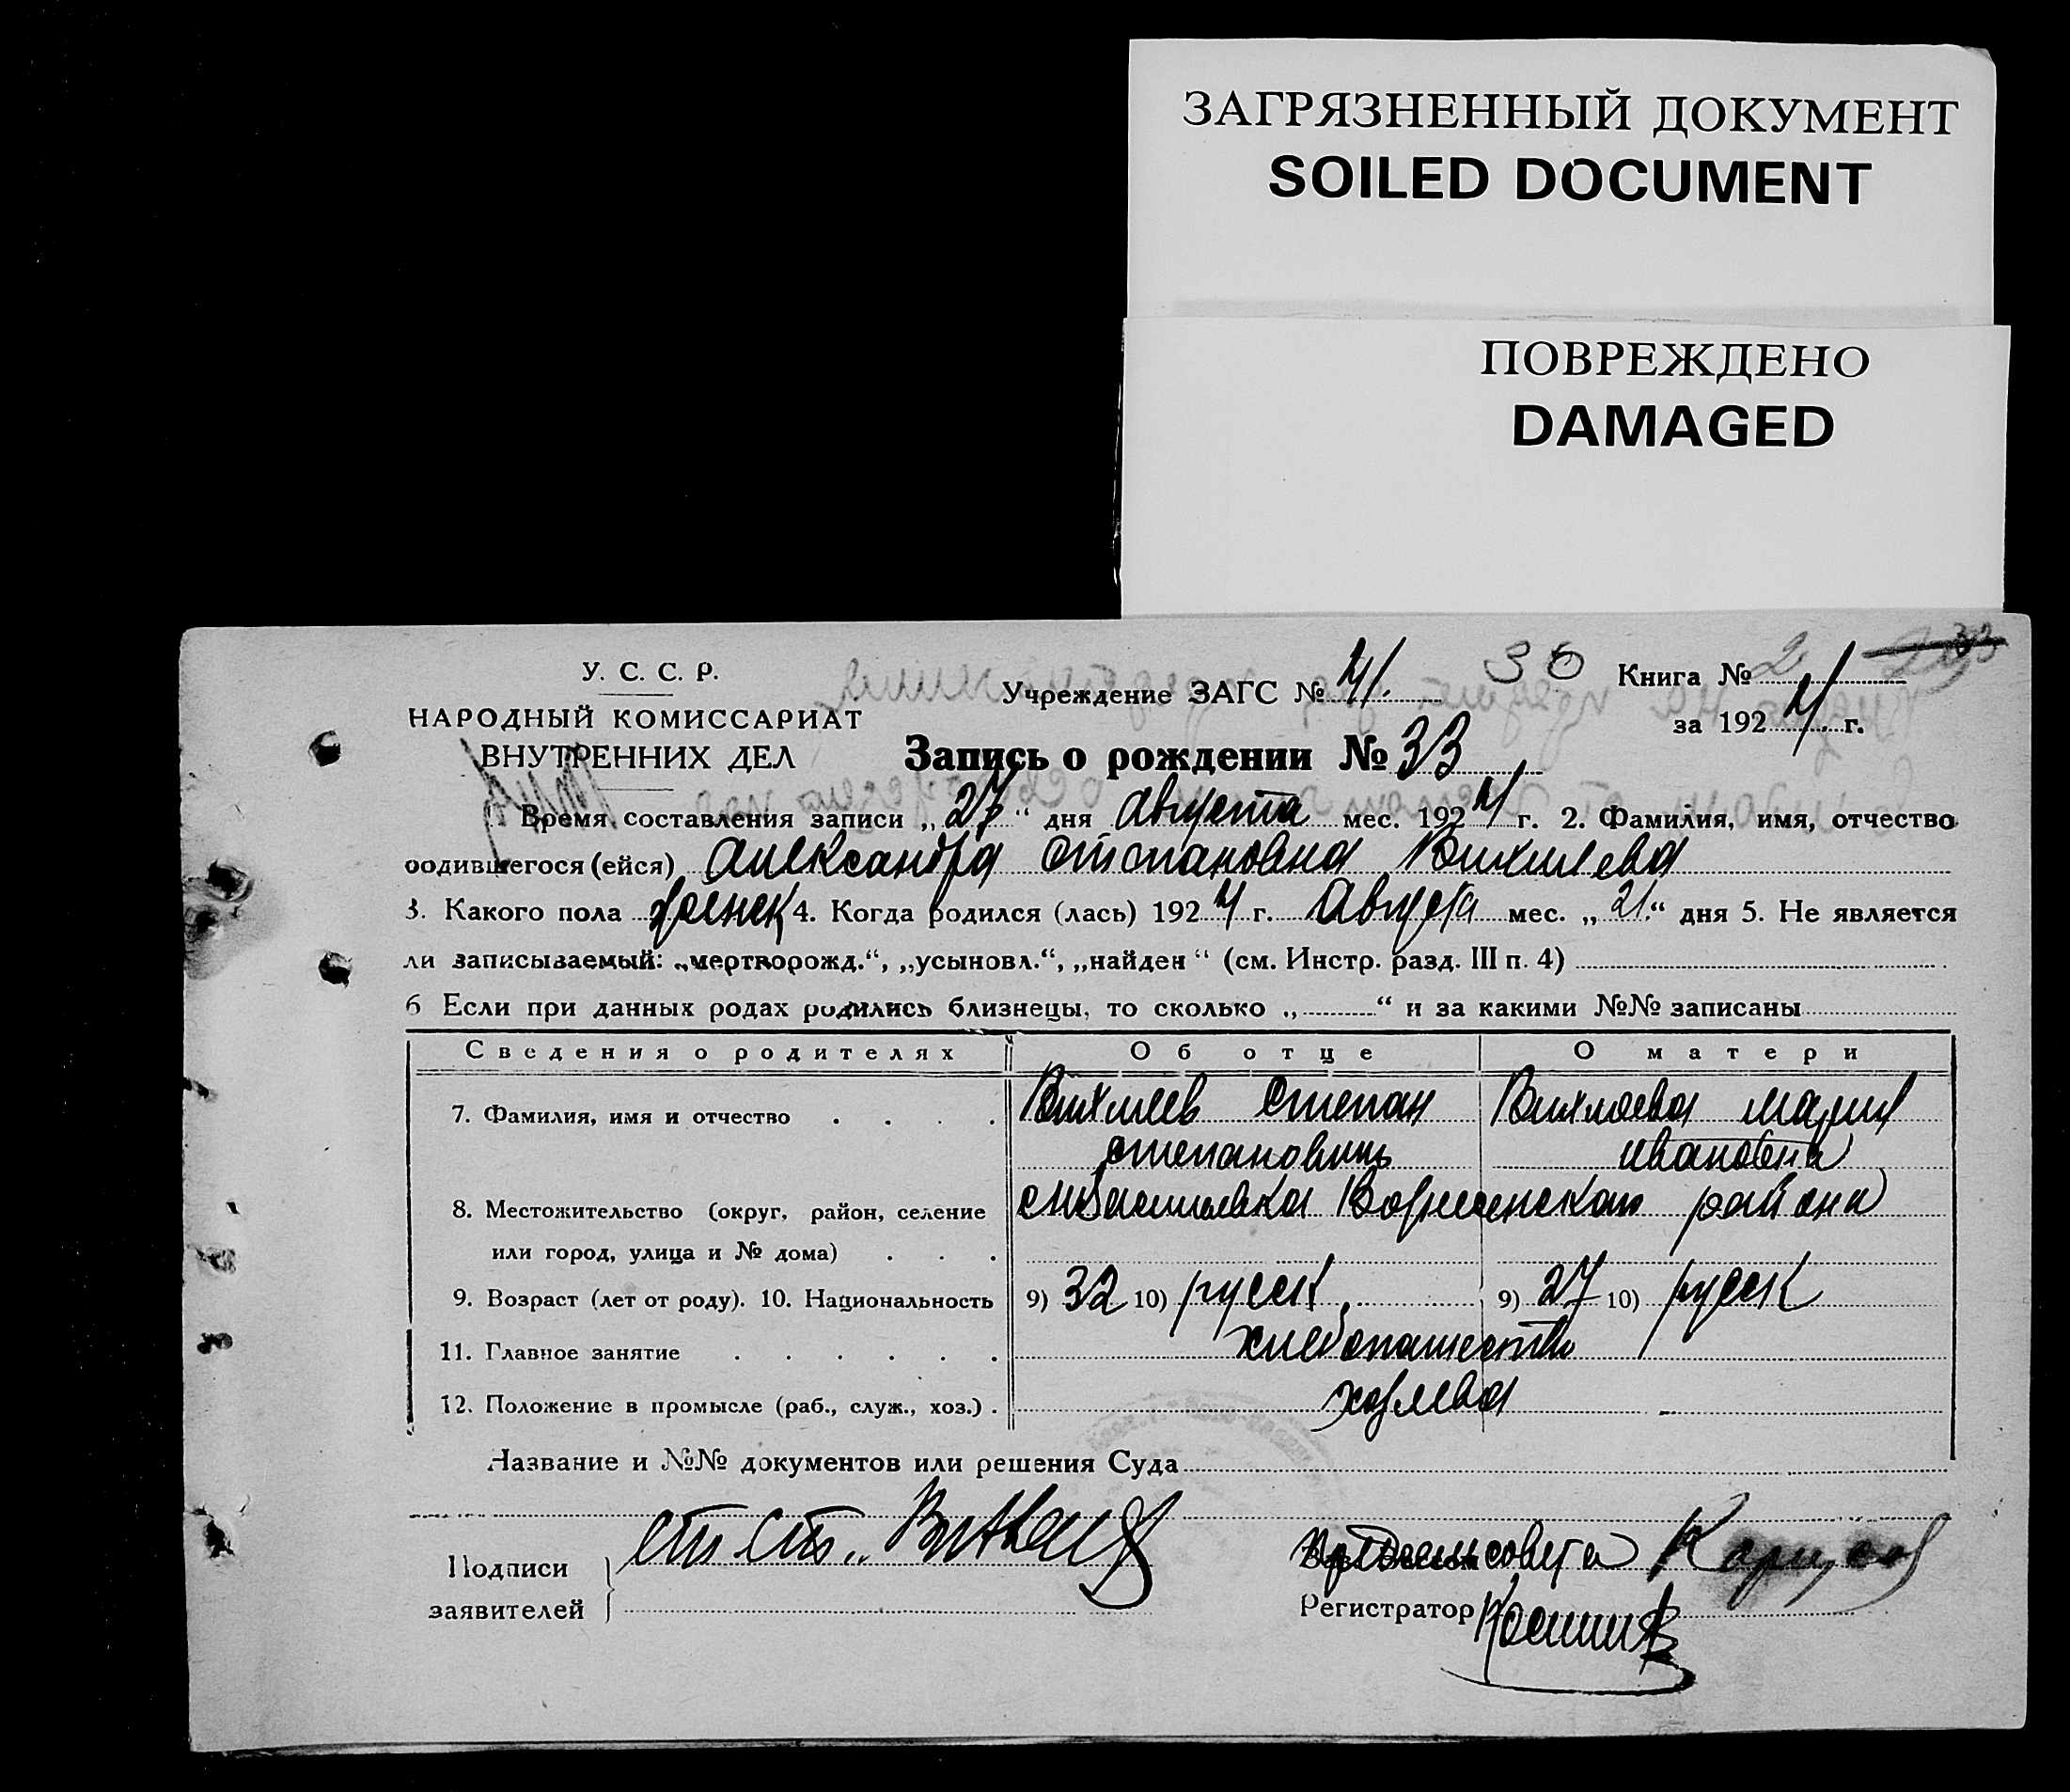 ЗАГРЯЗНЕННЫЙ ДОКУМЕНТ
SOILED DOCUMENT
ПОВРЕЖДЕНО
DAMAGED
У. С. С. Р.
НАРОДНЫЙ КОМИССАРИАТ
ВНУТРЕННИХ ДЕЛ
Учреждение ЗАГС № 4. 36 Книга № 2
за 1924 г.
Запись о рождении № 33
Время составления записи „27“ дня Августа мес. 1924 г. 2. Фамилия, имя, отчество
родившегося (ейся) Александра Степановна Вихлиева
3. Какого пола женск 4. Когда родился (лась) 1924 г. Августа мес. „21.“ дня 5. Не является
ли записываемый: „мертворожд.“, „усыновл.“, „найден“ (см. Инстр. разд. III п. 4)
6 Если при данных родах родились близнецы, то сколько „ “ и за какими №№ записаны
Сведения о родителях Об отце О матери
7. Фамилия, имя и отчество . . . . Вихлиев Степан Степанович Вихлиева Мария Ивановна
8. Местожительство (округ, район, селение Васильевка района
или город, улица и № дома) . . .
9. Возраст (лет от роду). 10. Национальность 9) 32 10) русск. 9) 27 10) русск
11. Главное занятие . . . . . . хлебопашество
12. Положение в промысле (раб., служ., хоз.) . хозяева
Название и №№ документов или решения Суда
Подписи
заявителей
Предсельсовета
Регистратор